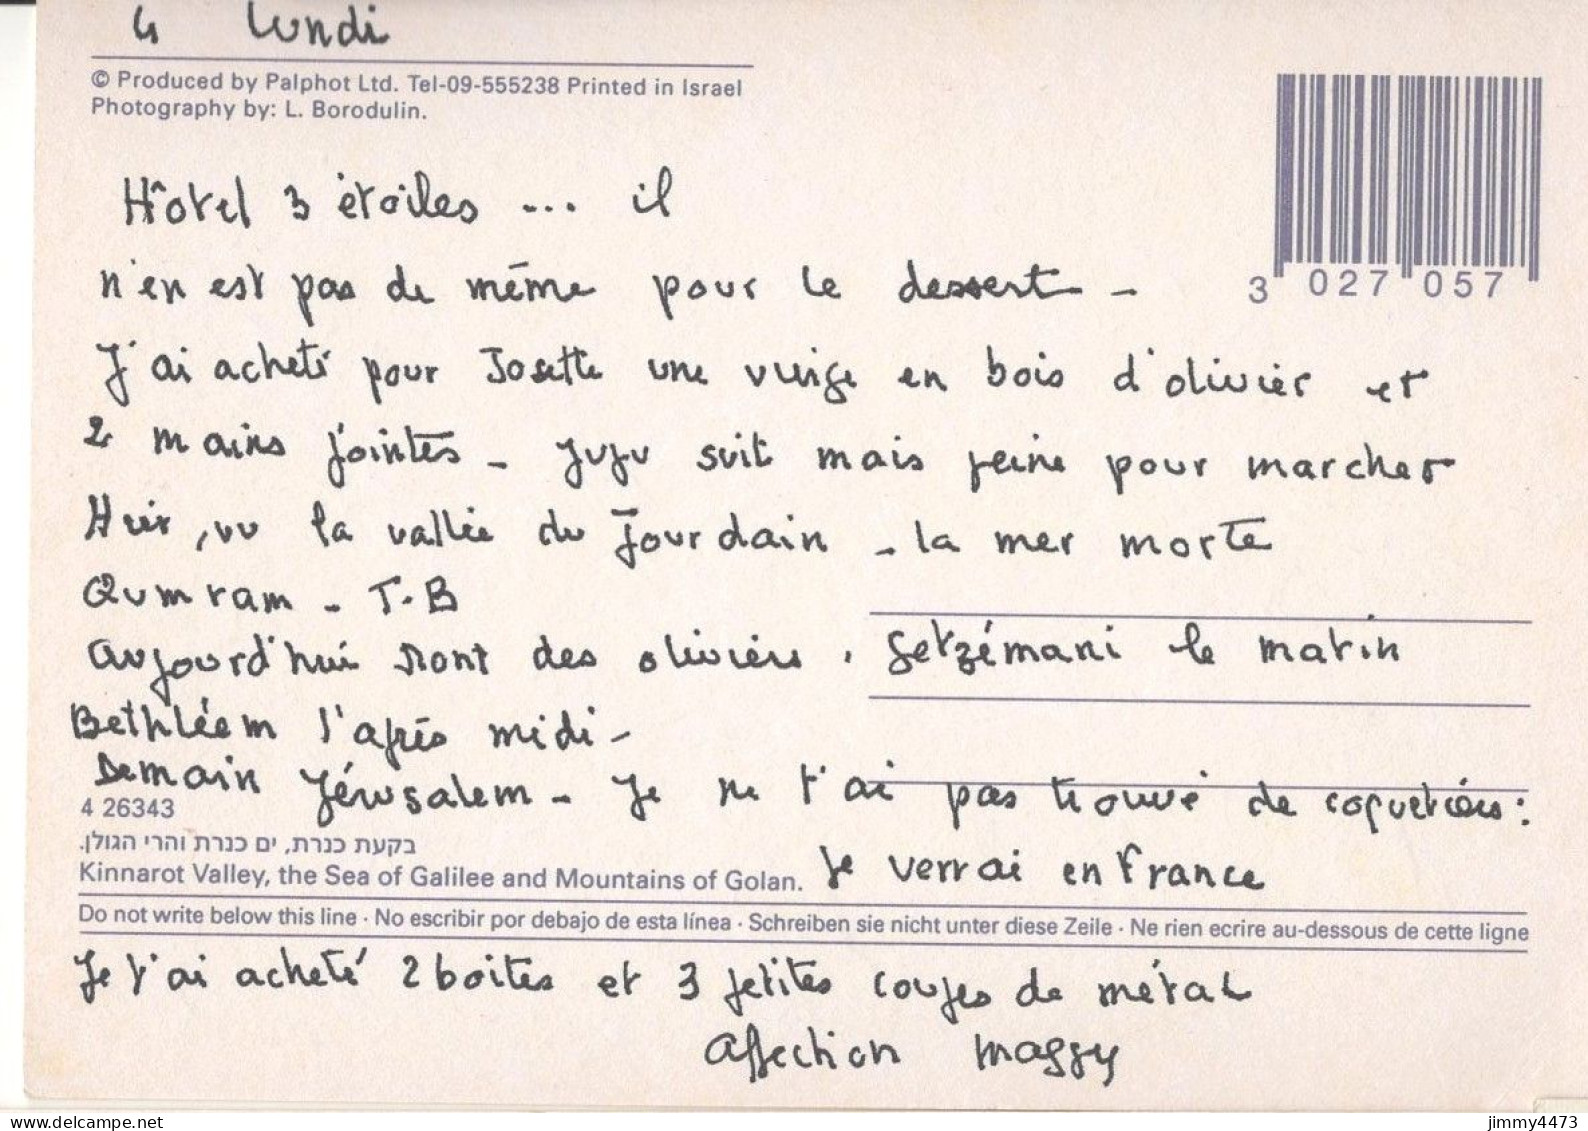 4 lundi
© Produced by Palphot Ltd. Tel-09-555238 Printed in Israel
Photography by: L. Borodulin.
3 027057
Hôtel 3 étoiles ... il
n'en est pas de même pour le dessert -
J'ai acheté pour Josette une vierge en bois d'olivier et
2 mains jointes - Juju suit mais peine pour marcher
Hier, vu la vallée du Jourdain - la mer morte
Qumram - T.B
Aujourd'hui mont des oliviers, Getzémani le matin
Bethléem l'après midi -
Demain Jérusalem - Je ne t'ai pas trouvé de coquetiers :
4 26343
בקעת כנרת, ים כנרת והרי הגולן.
Kinnarot Valley, the Sea of Galilee and Mountains of Golan. Je verrai en France
Do not write below this line · No escribir por debajo de esta línea · Schreiben sie nicht unter diese Zeile · Ne rien ecrire au-dessous de cette ligne
Je t'ai acheté 2 boites et 3 petites coupes de métal
Affection Maggy
jimmy4473